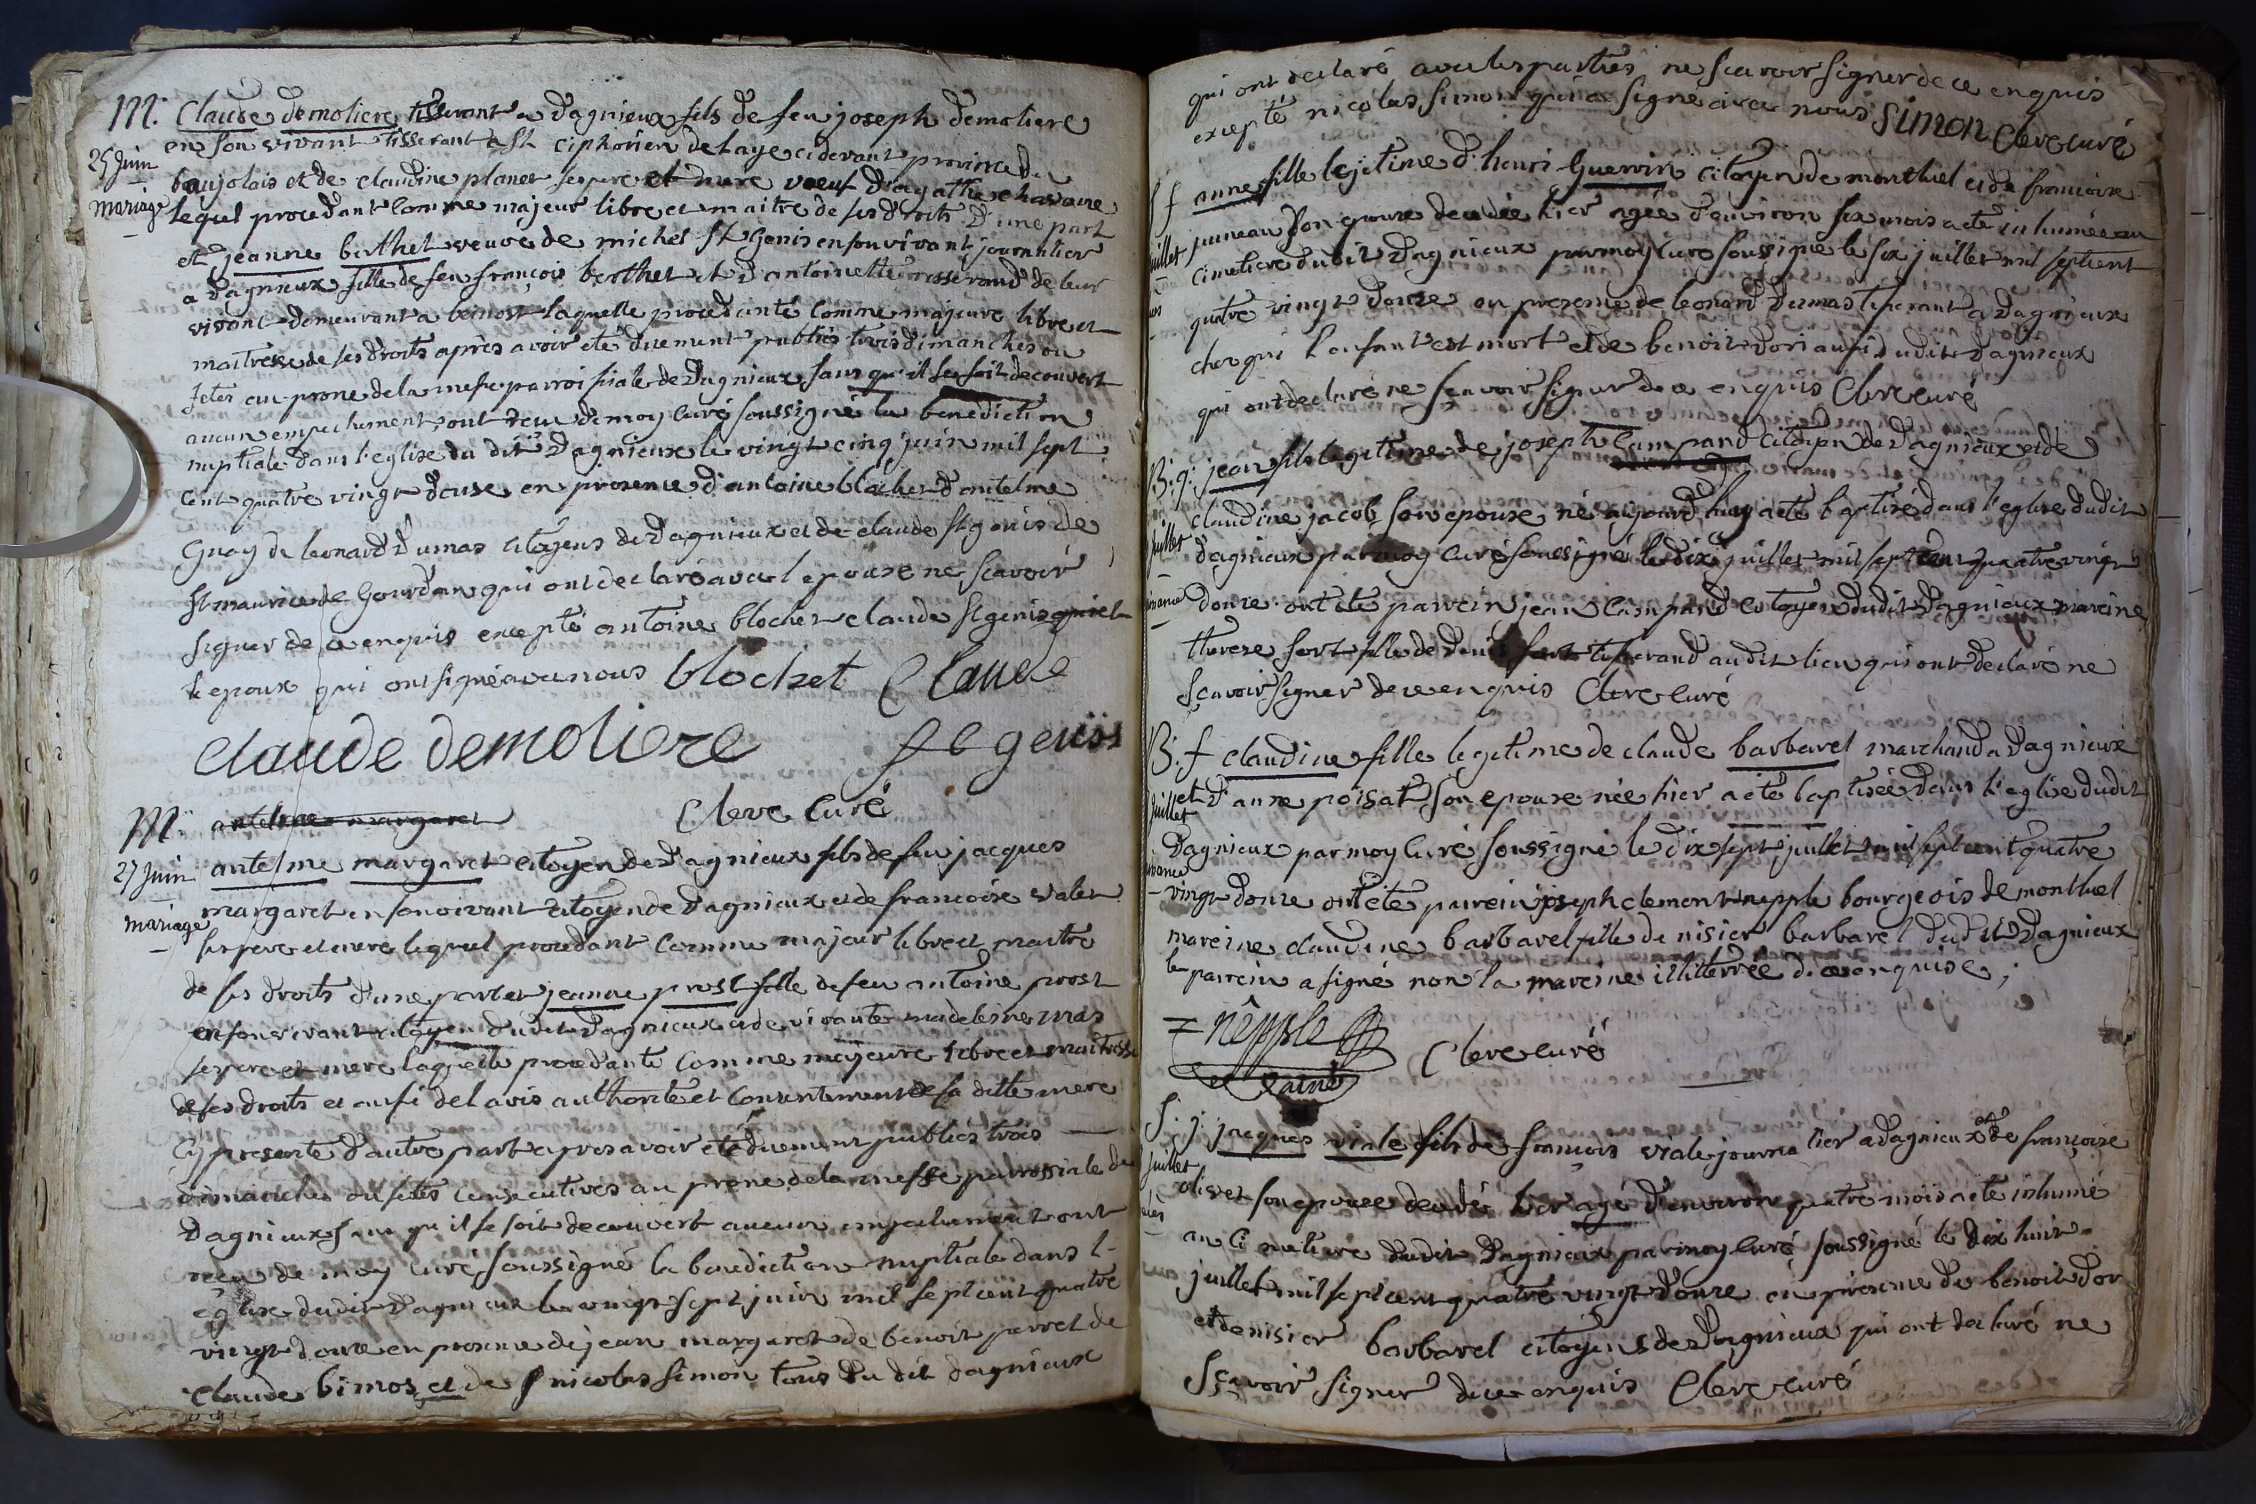 M. Claude demoliere tisserant a dagnieux fils de feu joseph demoliere
25 Juin
mariage
en son vivant tisserant a St ciphorien de Laye cidevant province du
baujolais et de claudine planet ses pere et mere voeuf d'agathe chavane
lequel procedant comme majeur libre et maitre de ses droits d'une part
et jeanne berthet veuve de michel St Genis en son vivant journalier
a dagnieux fille de feu françois berthet et d'antoinette rosserand de leur
vivant demeurant a beinost laquelle procedante comme majeure libre et
maitresse de ses droits après avoir eté duement publiés trois dimanches ou
fetes au prone de la messe parroissiale de Dagnieux sans qu'il se soit decouvert
aucun empechement ont recu de moy curé soussigné la benediction
nuptiale dans l'eglise du dit Dagnieux le vingt cinq juin mil sept
cent quatre vingt douse en presence d'antoine blochet d'antelme
Guay de leonard Dumas citoyens de Dagnieux et de claude St genis de
St maurice de Gourdan qui ont declaré avec l'epouse ne scavoir
signer de ce enquis excepté antoine blochet claude St genis et
l'epoux qui ont signé avec nous blochet Claude
claude demoliere st genis
Cleve Curé
M. antelme margaret
27 Juin
mariage
antelme margaret citoyen de Dagnieux fils de feu jacques
margaret en son vivant citoyen de Dagnieux et de francoise valet
ses pere et mere lequel procedant comme majeur libre et maitre
de ses droits d'une part et jeanne prost fille de feu antoine prost
en son vivant citoyen dudit Dagnieux et de vivante madeleine mas
ses pere et mere laquelle procedante comme majeure libre et maitresse
de ses droits et aussi de l avis authorité et consentement de sa ditte mere
cy presente d'autre part apres avoir eté duement publiés trois
dimanches ou fetes consecutives au prone de la messe parrossiale de
Dagnieux sans qu'il se soit decouvert aucun empechement ont
recu de moy curé soussigné la benediction nuptiale dans l
église dudit Dagnieux le vingt sept juin mil sept cent quatre
vingt douze en presence de jean margaret de benoit perret de
claude bimos et de nicolas simon tous du dit dagnieux
qui ont declaré avec les parties ne scavoir signer de ce enquis
excepté nicolas simon qui a signé avec nous simon Cleve curé
S f anne fille lejitime d'henri Guerrin citoyen de montluel et de francoise
juillet
juneau son epouse decedée hier agée d'environ six mois a eté inhumée au
cimetiere dudit Dagnieux par moy curé soussigné le six juillet mil septcent
quatre vingt douze en presence de leonard dumas tisserant a Dagnieux
chez qui l'enfant est mort et de benoit dori aussi dudit Dagnieux
qui ont declaré ne sçavoir signer de ce enquis Cleve curé
B. g. jean fils legitime de joseph Campand citoyen de Dagnieux et de
juillet
claudine jacob son epouse né aujourd'huy a eté baptisé dans l'eglise dudit
dagnieux par moy curé soussigné le dix juillet mil sept cent quatre vingt
douze ont eté parrein jean Campand citoyen dudit Dagnieux mareine
therese fort fille de denis fort tisserand audit lieu qui ont declaré ne
sçavoir signer de ce enquis Cleve curé
B. f claudine fille legitime de claude barbarel marchand a Dagnieux
juillet
et d'anne poisat son epouse née hier a eté baptisée dans l'eglise dudit
Dagnieux par moy curé soussigné le dix sept juillet mil sept cent quatre
vingt douze ont eté parein joseph clement nepple bourgeois de montluel
mareine claudine barbarel fille de nisier barbarel dudit Dagnieux
le parrein a signé non la mareine illiterrée de ce enquise;
nêpple
l'ainé
Cleve curé
S. g. jacques viale fils de françois viale journalier a dagnieux et de françoise
juillet
olivet son epouse decedé hier agé d'environ quatre mois a eté inhumé
au cimetiere dudit Dagnieux par moy curé soussigné le dix huit
juillet mil sept cent quatre vingt douze en presence de benoit dor
et de nisier barbarel citoyens de Dagnieux qui ont declaré ne
sçavoir signer de ce enquis Cleve curé